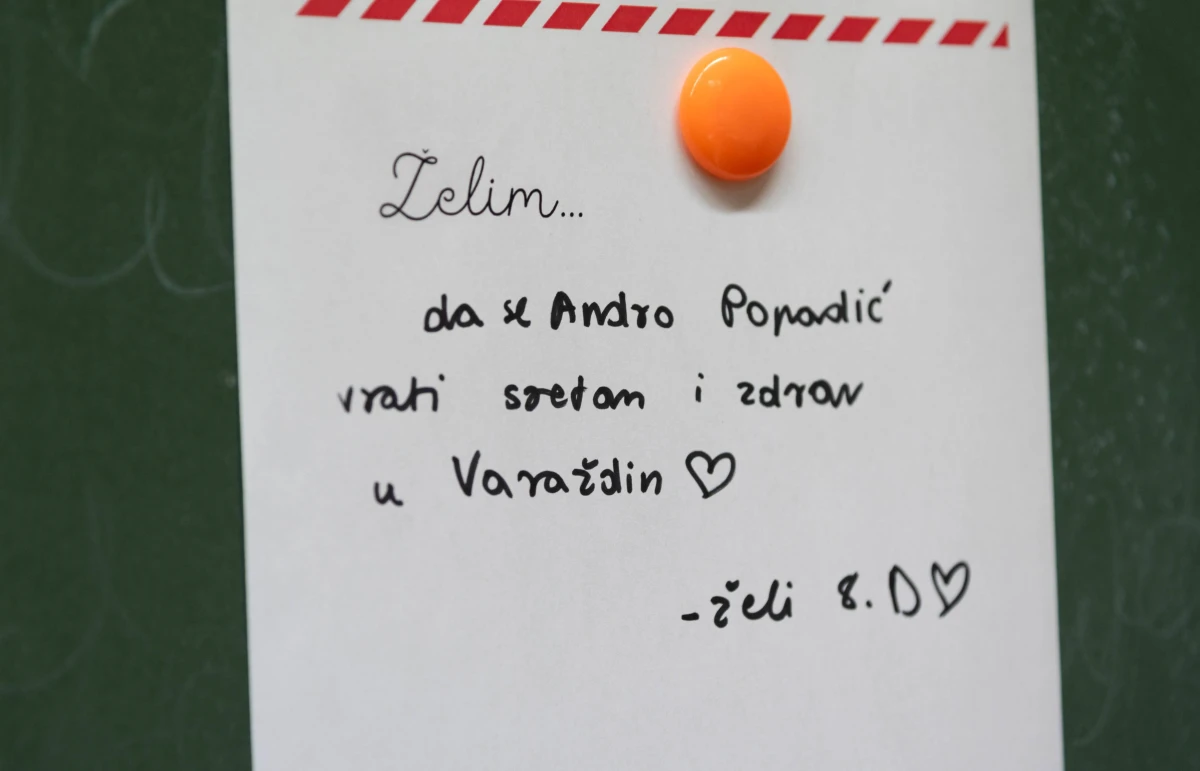 Želim...
da se Andro Popadić
vrati sretan i zdrav
u Varaždin ♡
- želi 8. D ♡